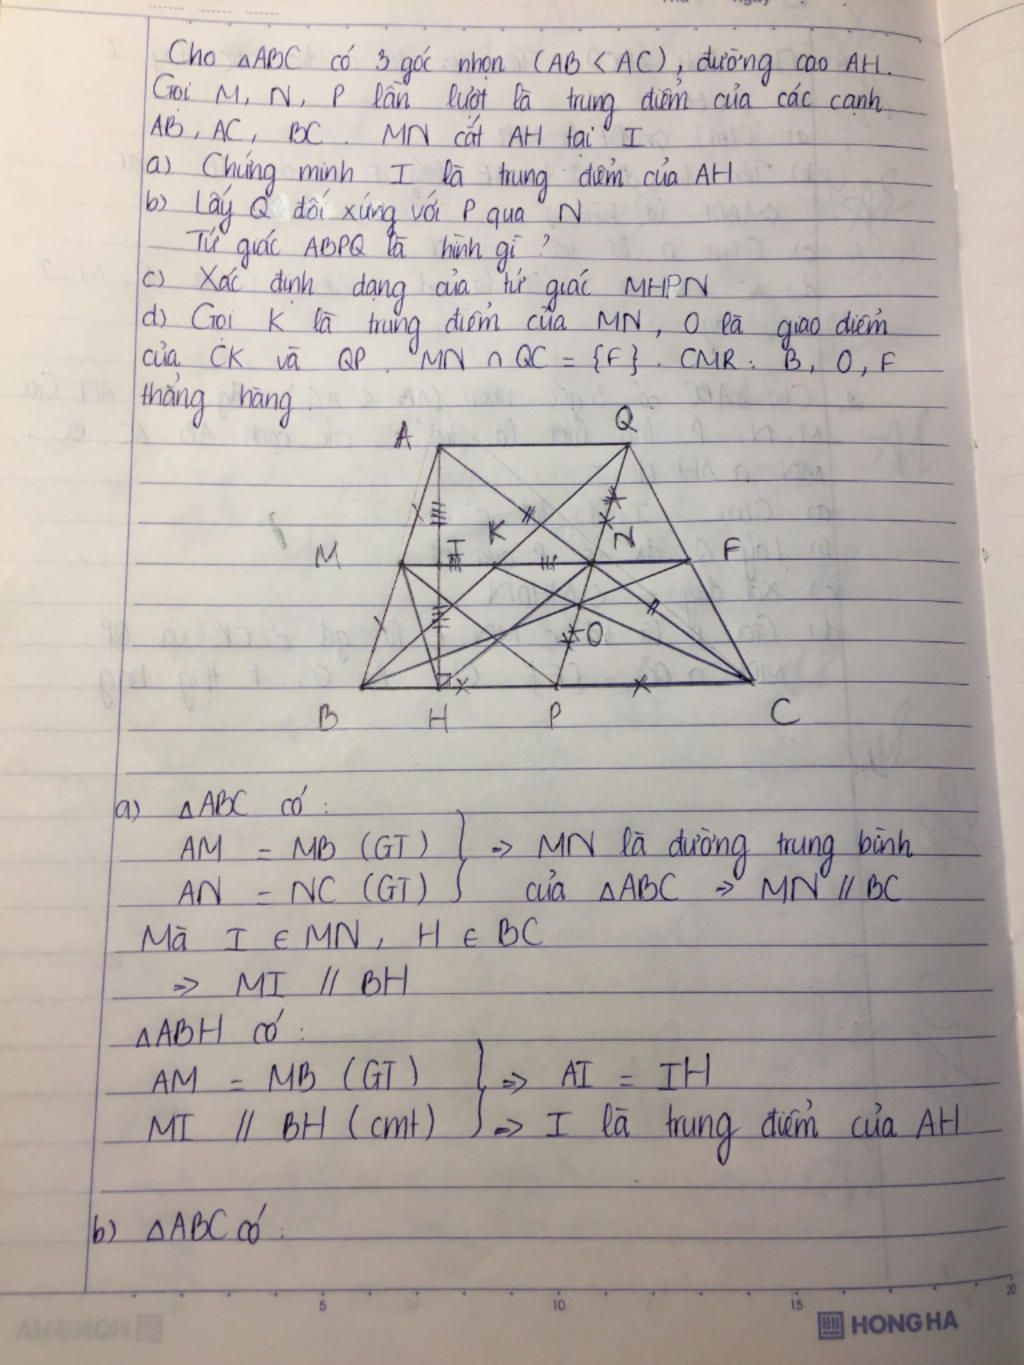 Cho △ABC có 3 góc nhọn (AB < AC), đường cao AH.
Gọi M, N, P lần lượt là trung điểm của các cạnh
AB, AC, BC. MN cắt AH tại I
a) Chứng minh I là trung điểm của AH
b) Lấy Q đối xứng với P qua N
Tứ giác ABPQ là hình gì?
c) Xác định dạng của tứ giác MHPN
d) Gọi K là trung điểm của MN, O là giao điểm
của CK và QP. MN ∩ QC = {F}. CMR: B, O, F
thẳng hàng.
A Q
M I K N F
O
B H P C
a) △ABC có:
AM = MB (GT) } => MN là đường trung bình
AN = NC (GT) } của △ABC => MN // BC
Mà I ∈ MN, H ∈ BC
=> MI // BH
△ABH có:
AM = MB (GT) } => AI = IH
MI // BH (cmt) } => I là trung điểm của AH
b) △ABC có:
5 10 15 20
HONG HA